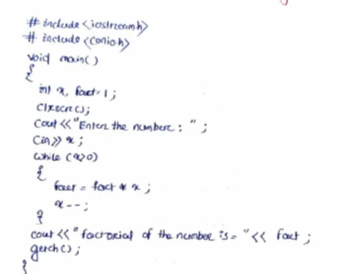 # include <iostream.h>
# include <conio.h>
void main()
{
int x, fact=1;
clrscr();
cout <<"Enter the number: ";
cin>> x;
while (x>0)
{
fact = fact * x;
x--;
}
cout <<"factorial of the number is= "<< fact ;
getch();
}